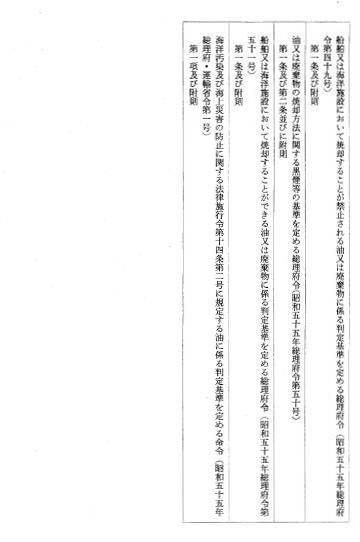 船舶又は海洋施設において焼却することが禁止される油又は廃棄物に係る判定基準を定める総理府令(昭和五十五年総理府
令第四十九号)
第一条及び附則
油又は廃棄物の焼却方法に関する黒煙等の基準を定める総理府令(昭和五十五年総理府令第五十号)
第一条及び第二条並びに附則
船舶又は海洋施設において焼却することができる油又は廃棄物に係る判定基準を定める総理府令(昭和五十五年総理府令第
五十一号)
第一条及び附則
海洋汚染及び海上災害の防止に関する法律施行令第十四条第二号に規定する油に係る判定基準を定める命令(昭和五十五年
総理府・運輸省令第一号)
第一項及び附則